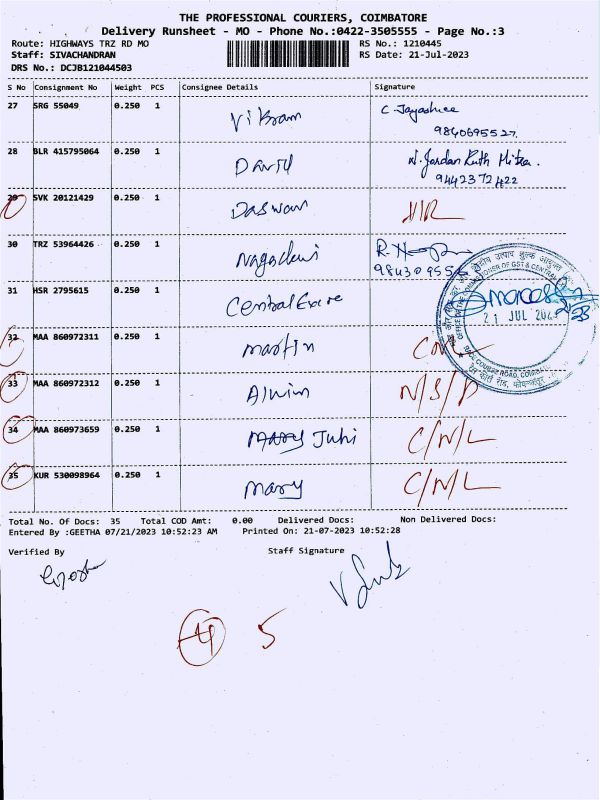 THE PROFESSIONAL COURIERS, COIMBATORE
Delivery Runsheet - MO - Phone No.:0422-3505555 - Page No.:3
Route: HIGHWAYS TRZ RD MO
RS No.: 1210445
Staff: SIVACHANDRAN
RS Date: 21-Jul-2023
DRS No.: DCJB121044503
S No Consignment No Weight PCS Consignee Details Signature
27 SRG 55049 0.250 1 Vikram C. Jayashree
9840695527
28 BLR 415795064 0.250 1 David N. Jordan Ruth Mitra.
9442372422
29 SVK 20121429 0.250 1 Daswan
30 TRZ 53964426 0.250 1 Nagadevi R.
31 HSR 2795615 0.250 1 Central Excise
21 JUL 2023
32 MAA 860972311 0.250 1 Martin
33 MAA 860972312 0.250 1 Alwin N/S/P
34 MAA 860973659 0.250 1 Mary Juhi C/N/L
35 KUR 530098964 0.250 1 Mary C/N/L
Total No. Of Docs: 35 Total COD Amt: 0.00 Delivered Docs: Non Delivered Docs:
Entered By :GEETHA 07/21/2023 10:52:23 AM Printed On: 21-07-2023 10:52:28
Verified By Staff Signature
4 5